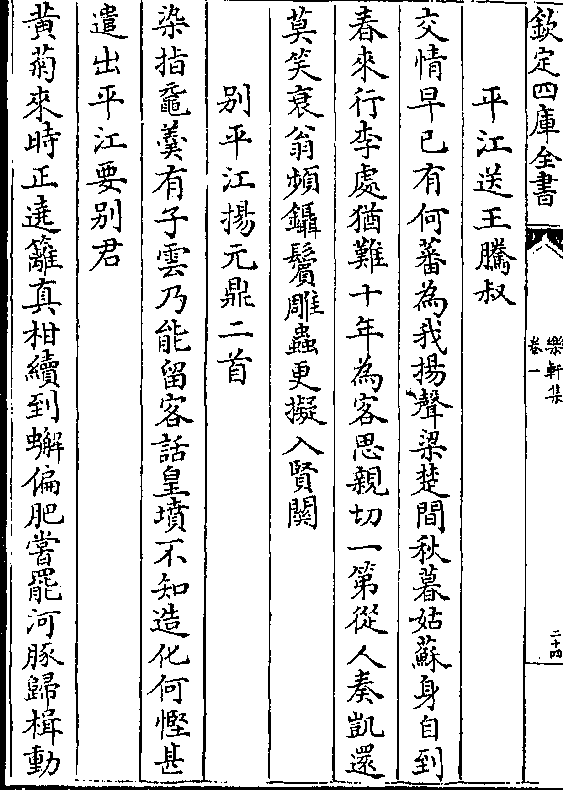 欽定四庫全書
樂軒集
卷一
二十四
平江送王騰叔
交情早已有何蕃為我揚聲梁楚間秋暮姑蘇身自到
春來行李處猶難十年為客思親切一第從人奏凱還
莫笑衰翁頻鑷鬢雕蟲更擬入賢關
别平江揚元鼎二首
染指黿羮有子雲乃能留客話皇墳不知造化何慳甚
遣出平江要别君
黄菊來時正遶籬真柑續到蠏偏肥嘗罷河豚歸楫動